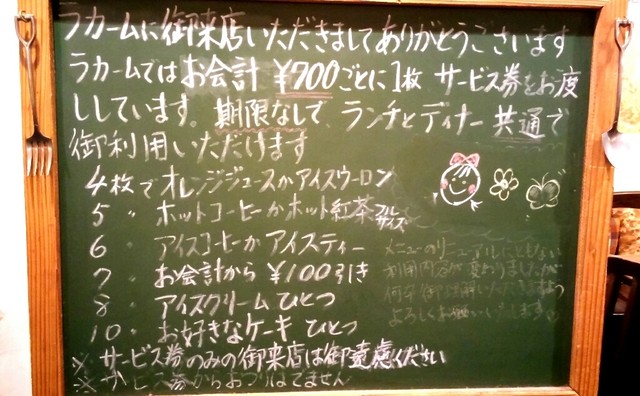 ラカームに御来店いただきましてありがとうございます
ラカームではお会計 ¥700ごとに1枚 サービス券をお渡
ししています。期限なしで、ランチとディナー 共通で
御利用いただけます
4枚でオレンジジュースかアイスウーロン
5 〃 ホットコーヒーかホット紅茶フルサイズ
6 〃 アイスコーヒーかアイスティー
7 〃 お会計から ¥100引き
8 〃 アイスクリーム ひとつ
10 〃 お好きなケーキ ひとつ
※ サービス券のみの御来店は御遠慮ください
※ サービス券からおつりはでません
メニューのリニューアルにともない
利用内容が変わりましたが
何卒御理解いただきますよう
よろしくお願いいたします